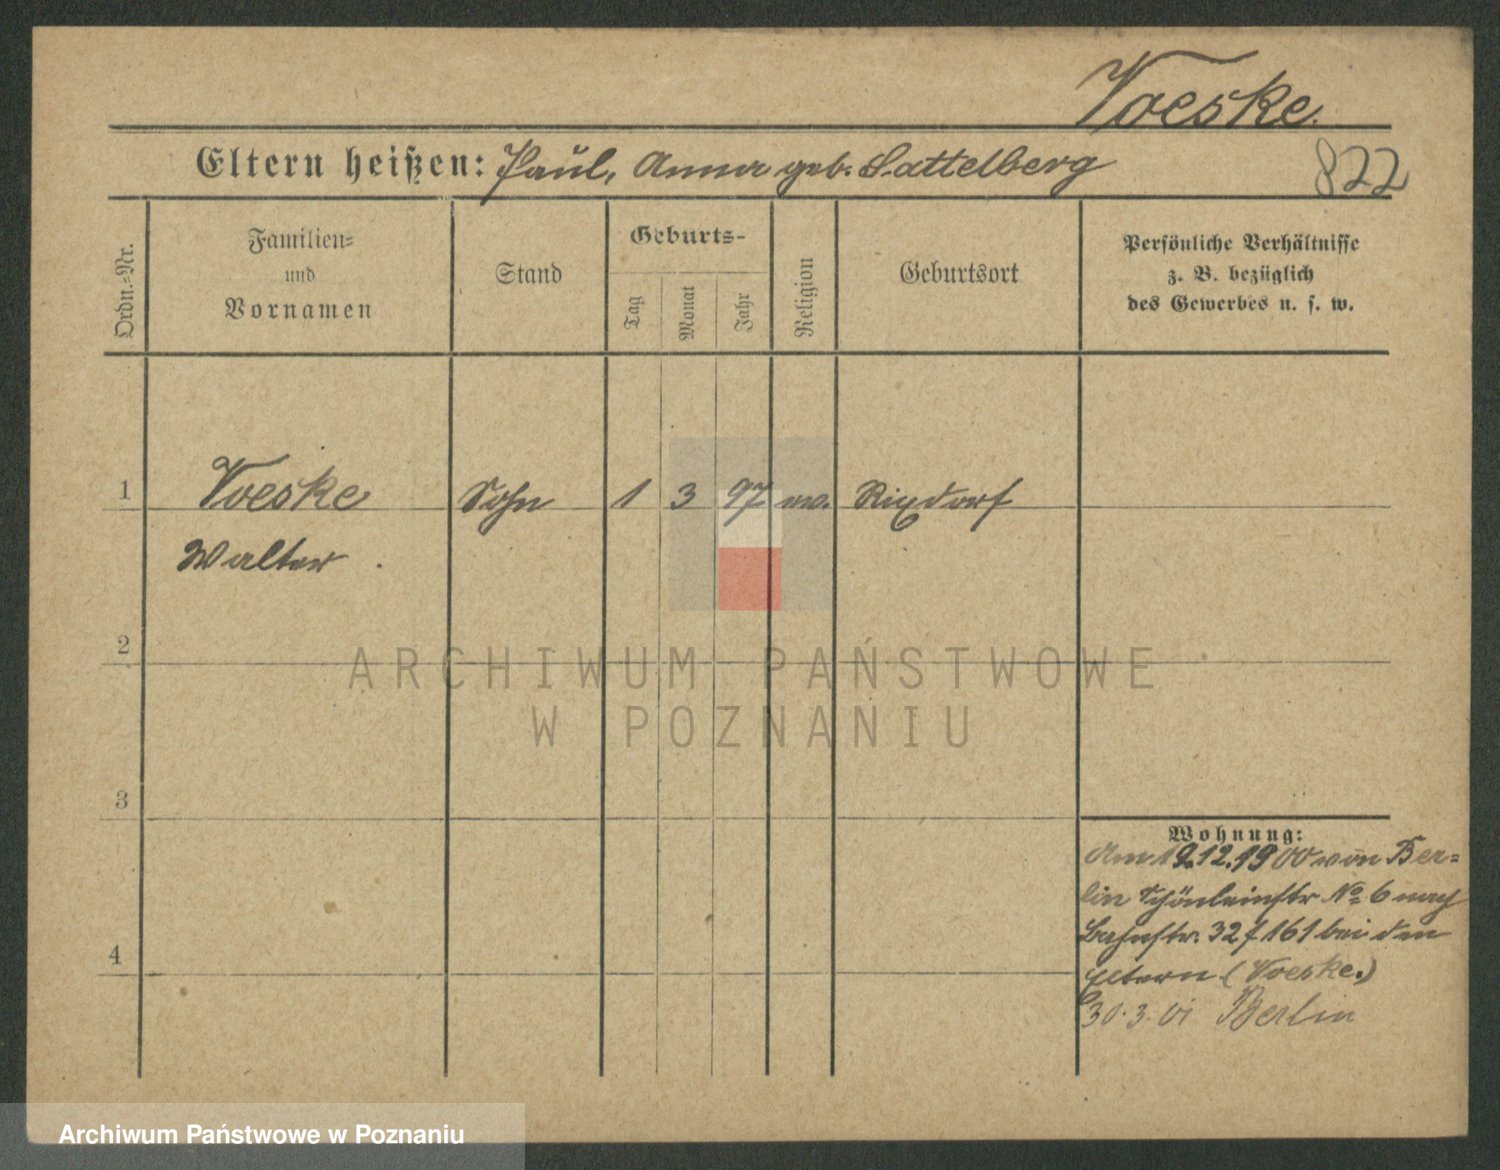 Voeske.
Eltern heißen: Paul, Anna geb. Sattelberg
822
Ordn.-Nr.
Familien-
und
Vornamen
Stand
Geburts-
Tag
Monat
Jahr
Religion
Geburtsort
Persönliche Verhältnisse
z. B. bezüglich
des Gewerbes u. s. w.
1 Voeske Sohn 1 3 97 Rixdorf
Walter
2
ARCHIWUM PAŃSTWOWE
W POZNANIU
3
Wohnung:
Am 19.12.1900 von Ber=
lin Schönleinstr No 6 nach
4
Bahnstr. 32 f 161 bei den
Eltern (Voeske.)
30.3.01 Berlin
Archiwum Państwowe w Poznaniu